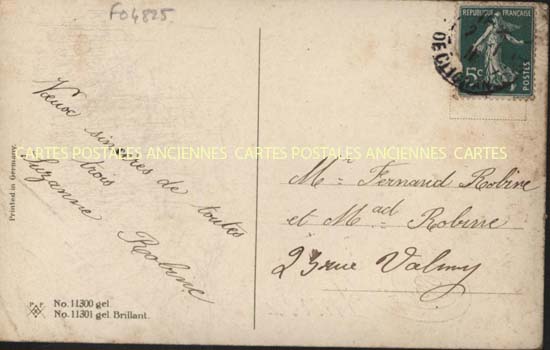 F04825
Vœux sincères de toutes
trois
Suzanne Robine
Printed in Germany.
No. 11300 gel.
No. 11301 gel. Brillant.
CARTES POSTALES ANCIENNES CARTES POSTALES ANCIENNES CARTES
REPUBLIQUE FRANÇAISE
5c
POSTES
Mr Fernand Robine
et Mad Robine
23 rue Valmy